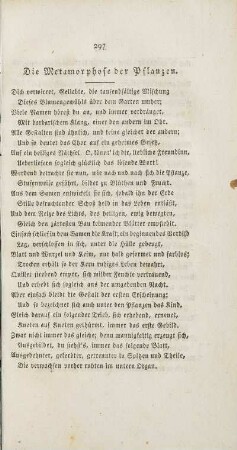 297
Die Metamorphose der Pflanzen.
Dich verwirret, Geliebte, die tausendfältige Mischung
Dieses Blumengewühls über dem Garten umher;
Viele Namen hörst du an, und immer verdränget,
Mit barbarischem Klang, einer den andern im Ohr.
Alle Gestalten sind ähnlich, und keine gleichet der andern;
Und so deutet das Chor auf ein geheimes Gesetz,
Auf ein heiliges Räthsel. O, könnt' ich dir, liebliche Freundinn,
Ueberliefern sogleich glücklich das lösende Wort!
Werdend betrachte sie nun, wie nach und nach sich die Pflanze,
Stufenweise geführt, bildet zu Blüthen und Frucht.
Aus dem Samen entwickelt sie sich, sobald ihn der Erde
Stille befruchtender Schoß hold in das Leben entläßt,
Und dem Reize des Lichts, des heiligen, ewig bewegten,
Gleich den zärtesten Bau keimender Blätter empfiehlt.
Einfach schlief in dem Samen die Kraft; ein beginnendes Vorbild
Lag, verschlossen in sich, unter die Hülle gebeugt,
Blatt und Wurzel und Keim, nur halb geformet und farblos;
Trocken erhält so der Kern ruhiges Leben bewahrt,
Quillet strebend empor, sich milder Feuchte vertrauend,
Und erhebt sich sogleich aus der umgebenden Nacht.
Aber einfach bleibt die Gestalt der ersten Erscheinung;
Und so bezeichnet sich auch unter den Pflanzen das Kind.
Gleich darauf ein folgender Trieb, sich erhebend, erneuet,
Knoten auf Knoten gethürmt, immer das erste Gebild.
Zwar nicht immer das gleiche; denn mannigfaltig erzeugt sich,
Ausgebildet, du siehst's, immer das folgende Blatt,
Ausgedehnter, gekerbter, getrennter in Spitzen und Theile,
Die verwachsen vorher ruhten im untern Organ.